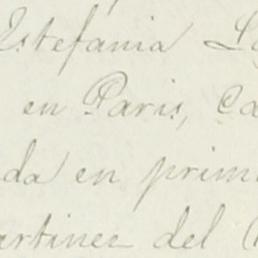 Estefania
en Paris, Ca
da en prim
artinez del